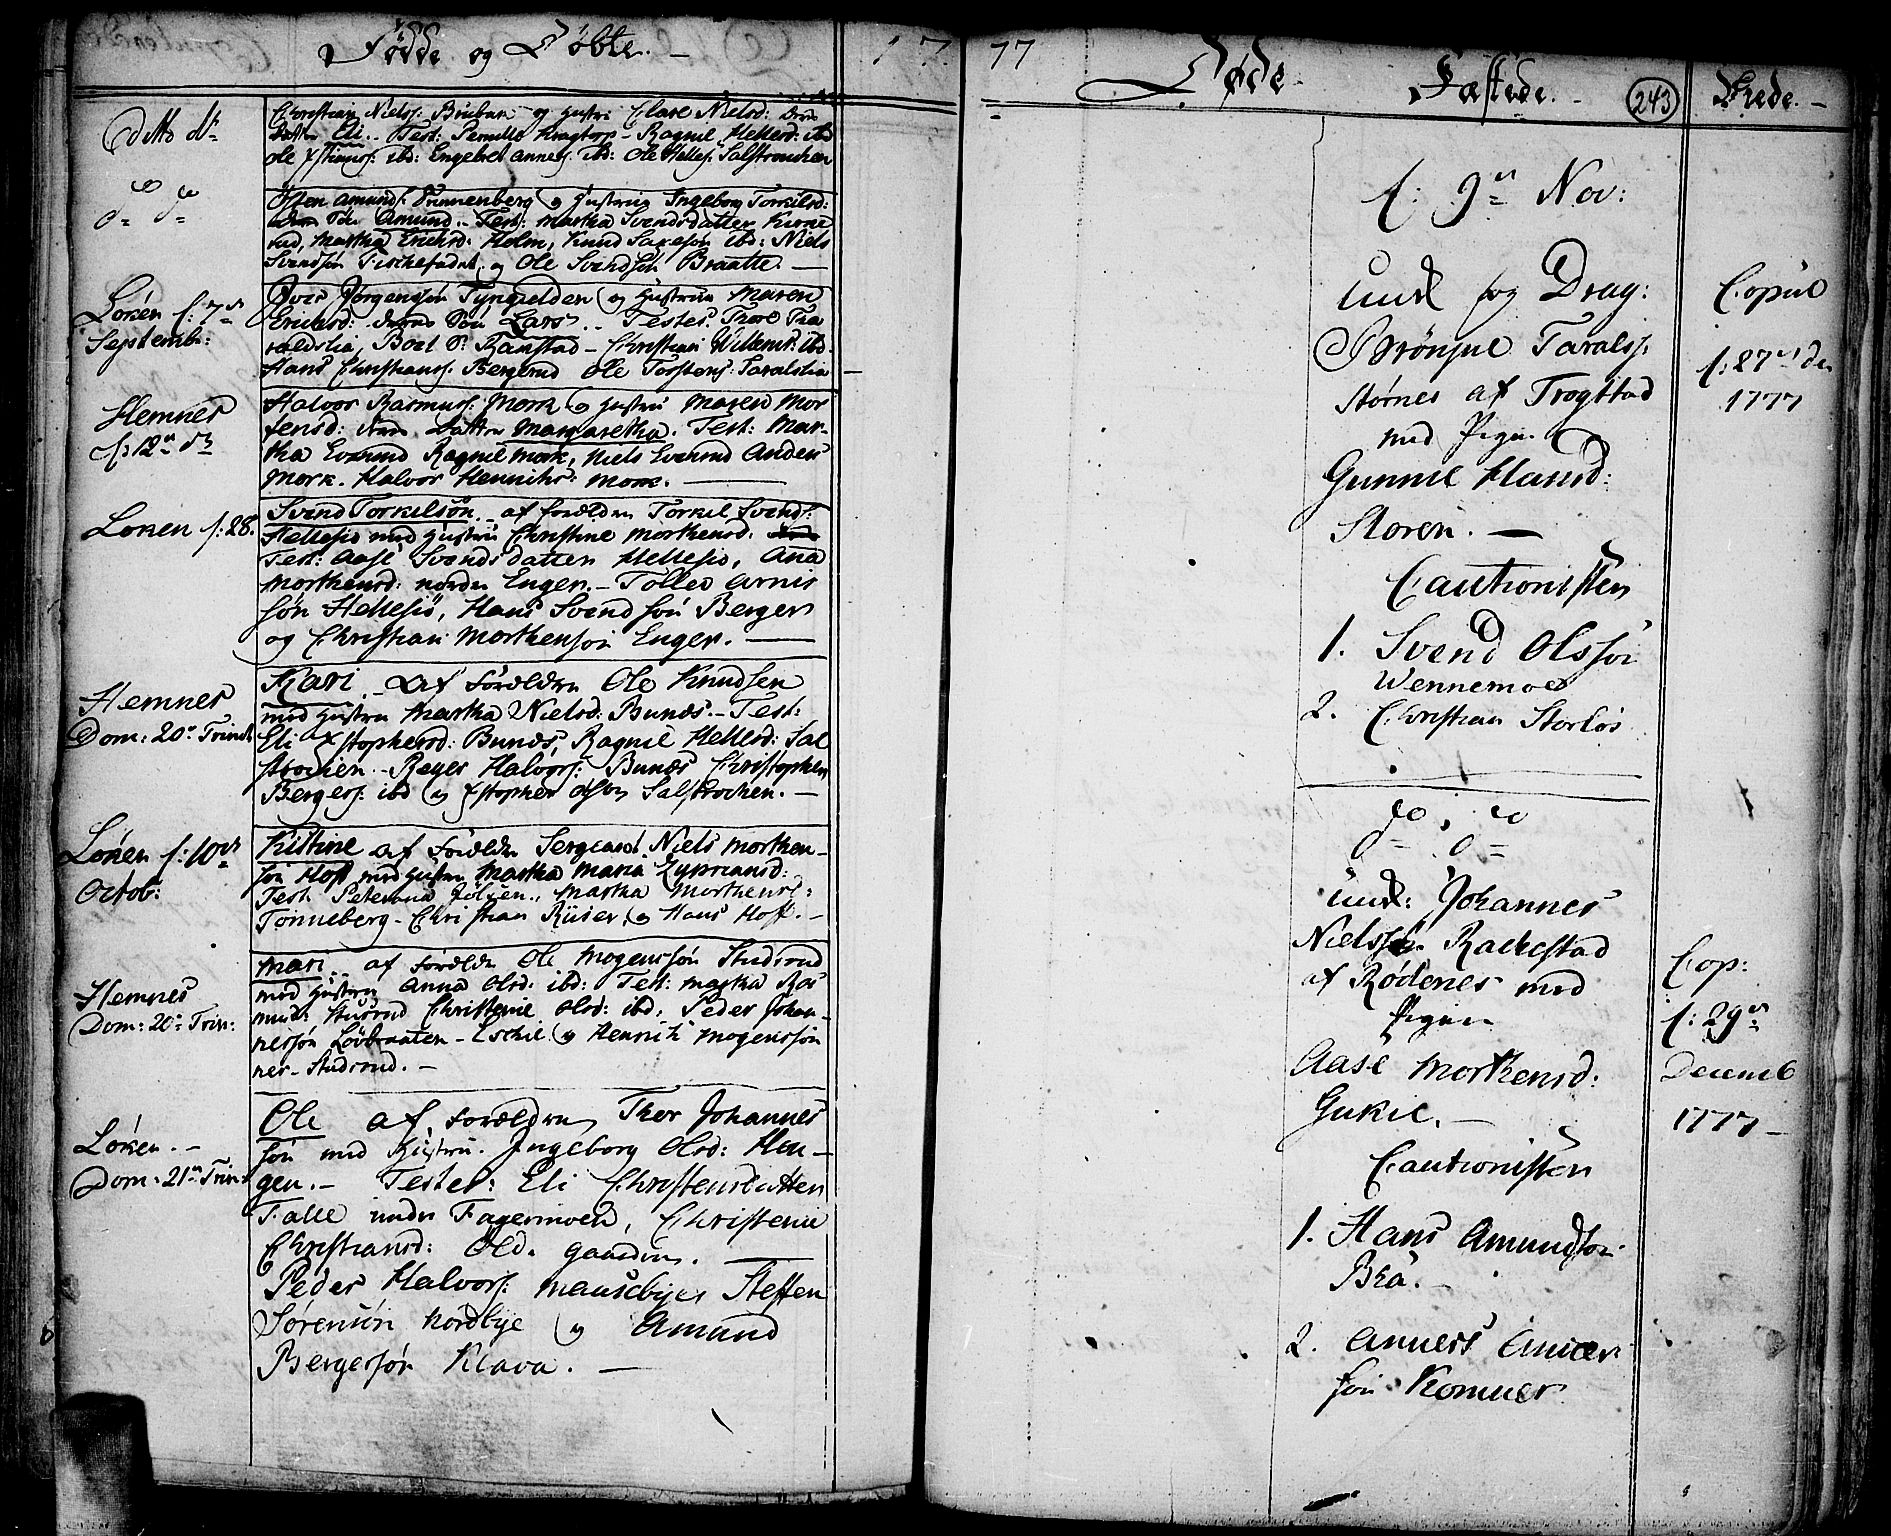 Födde og Döbte. —
17
Ditto dt
Christian Niels: og Hustru Clare Nielsd:
Eli. — Test: Pernille Kragtorp — Ragnil Hellesd: ibd
Ole Xstians: ibd: Engebret Annes: ibd: Ole Helles: Salstrouchen
Osten Amunds: Sunnenberg og Hustru Ingeborg Torkilsd:
Sön Amund. — Test: Martha Svendsdatter Kierne
rud, Martha Ericksd: Holm, Knud Saxesön ibd: Niels
Svendsön og Ole Svendsön Braatte. —
Löken f: 7de
Septemb:
Iver Jörgensön og Hustrue Maren
Ericksd: Sön Lars. — Testes: Thore Tha
raldslia, Boel S: Ramstad — Christian Willems: ibd.
Hans Christians: Bergerud Ole Torstens: Taralslia
Hemnes
f: 12te dt
Halvor Rasmus: Mork og Hustru Maren Mor
tensd: Datter Margaretha. Test: Mar-
tha Ragnil Mork, Niels Anders
Mork. Halvor Henrichs: Mork. —
Löken f: 28.
Svend Torkilsön — af Foreldre Torkil Svends:
Hellesiö med Hustru Christine Morthensd:
Test: Aase Svendsdatter Hellesiö, Ana
Morthensd: nordre Enger — Tollev Arnis
sön Hellesiö, Hans Svendsön Berger
og Christian Morthensön Enger. —
Hemnes
Dom: 20de Trinit
Kari — af Foreldre Ole Knudsen
med Hustru Martha Nielsd: Bunæs. — Test:
Eli Xstophersd: Bunæs, Ragnil Hellesd: Sal
strochen — Reyer Halvors: Bunæs Christopher
Bergers: ibd og Xstopher Olsen Salstrochen. —
Löken f: 10de
Octob:
Kistine af Foreldre Sergeant Niels Morthen-
sön Hoff med Hustru Martha Maria Zypriansd:
Test: Peternna Jölsen, Martha Morthensd:
Tönneberg — Christian Riiser, og Hans Hoff. —
Hemnes
Dom: 20de Trin:
Mari — af Foreldre Ole Mogensön Studsrud
med Hustru Anna Olsd: ibd: Test: Martha Ras
mus: Christenie Olsd: ibd, Peder Johan-
nessön Lövbraaten — Eschil og Henrik Mogensön
ner — Studsrud. —
Löken. —
Dom: 21de Trin:
Ole af Foreldre Thor Johannes
sön med Hustru Ingeborg Olsd: Heu-
gen. — Testes: Eli Christensdatter
Falle under Fagermoen, Christenie
Christiansd: Old. Gaarden.
Peder Halvors: Mansebyer Steffen
Sörensön Nordbye og Amund
Bergersön Klava. —
77
Döde —
Fæstede. —
243
Viede. —
f: 9de Nov:
Unk og Drag:
Brönjul Taralss:
Störnes af Trogstad
med Pigen
Gunnil Hansd:
Storen. —
Cautionister
1. Svend Olssön
Wennemoes
2. Christian Storlös
Copul
f: 27de
1777
do do
Unk: Johannes
Nielssön Rackestad
af Rödenes med
Pigen
Aase Morthensd:
Gukie. —
Cautionister
1. Hans Amundsön
Brä. —
2. Anners Anner
sön Komner
Cop:
f: 29de
Decemb
1777 —